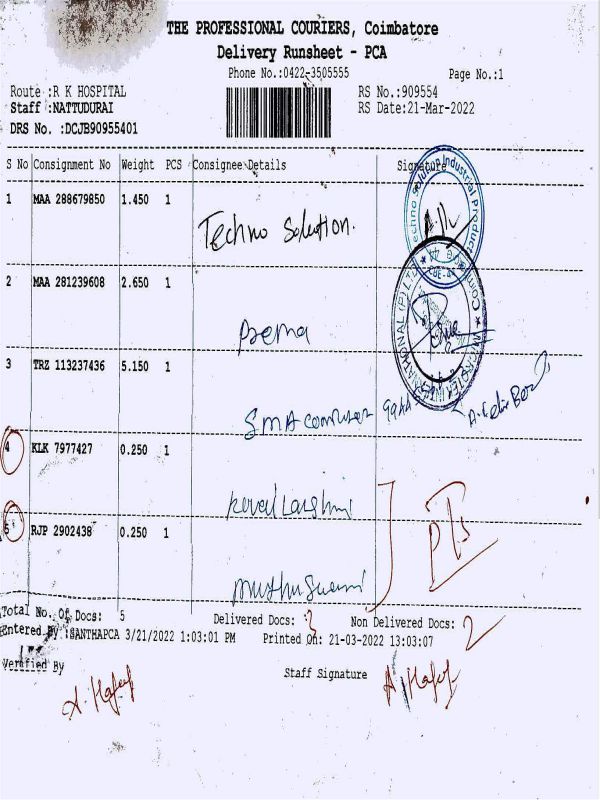 THE PROFESSIONAL COURIERS, Coimbatore
Delivery Runsheet - PCA
Phone No.:0422-3505555 Page No.:1
Route :R K HOSPITAL RS No.:909554
Staff :NATTUDURAI RS Date:21-Mar-2022
DRS No. :DCJB90955401
S No Consignment No Weight PCS Consignee Details Signature
1 MAA 288679850 1.450 1
Techno Solution.
2 MAA 281239608 2.650 1
Prema
3 TRZ 113237436 5.150 1
SMA computer
4 KLK 7977427 0.250 1
5 RJP 2902438 0.250 1
Muthuswami
Total No. Of Docs: 5 Delivered Docs: 3 Non Delivered Docs: 2
Entered By :SANTHAPCA 3/21/2022 1:03:01 PM Printed On: 21-03-2022 13:03:07
Verified By Staff Signature